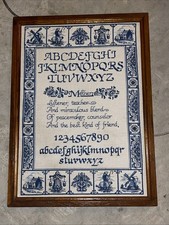 ABCDEFGHI
JKLMNOPQRS
TUVWXYZ
Mother
Listener, teacher
And miraculous blend
Of peacemaker, counselor
And the best kind of friend.
1234567890
abcdefghijklmnopqr
stuvwxyz